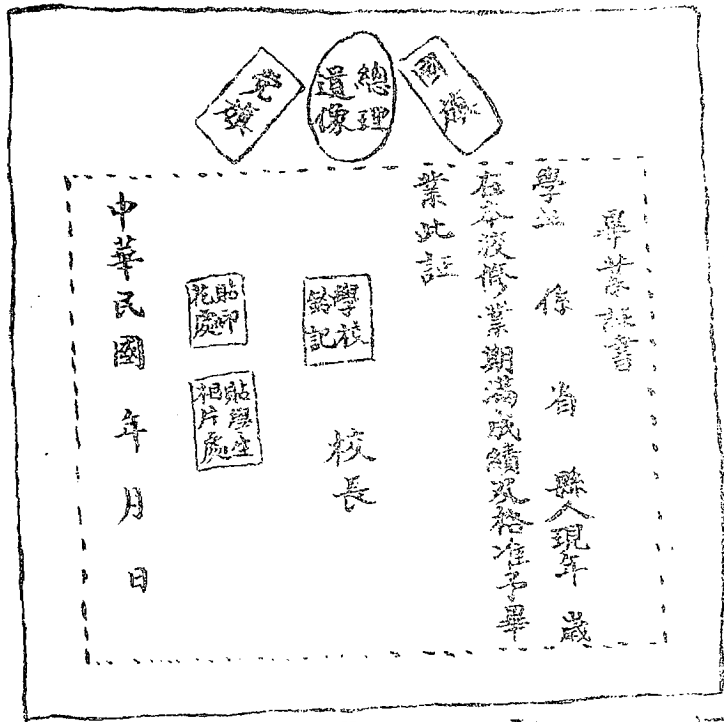 國旗
總理
遺像
党旗
畢業証書
學生 係 省 縣人現年 歲
在本校修業期滿成績及格准予畢
業此証
學校
鈐記
校長
貼印
花處
貼學生
相片處
中華民國 年 月 日